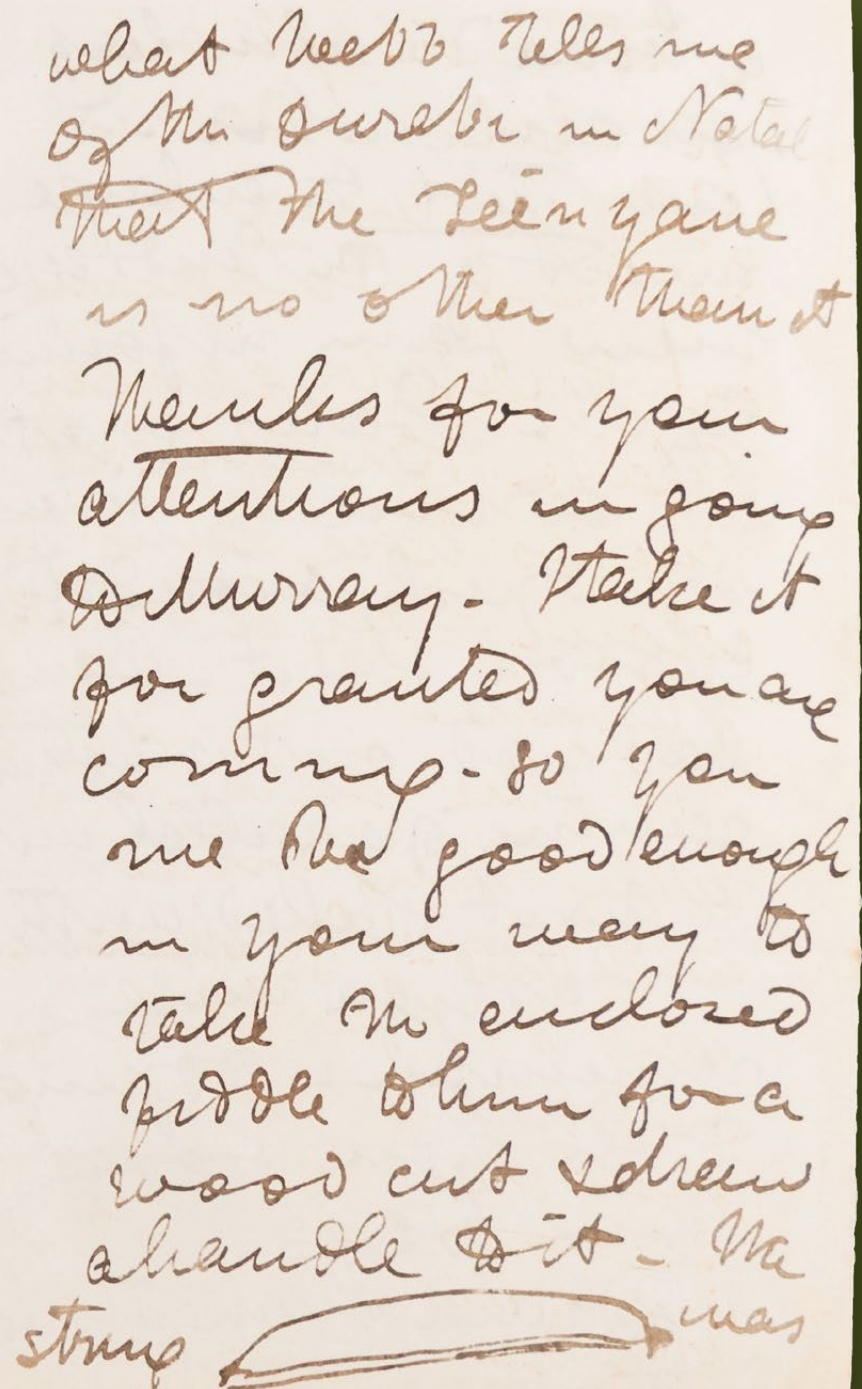 what Webb tells me
of the Surebe in Natal
that the Seenyane
is no other than it
Thanks for your
attentions in going
to Murray - I take it
for granted you are
coming - so you
me be good enough
in your way to
take the enclosed
fiddle to him for a
wood cut & draw
a handle to it - The
string was